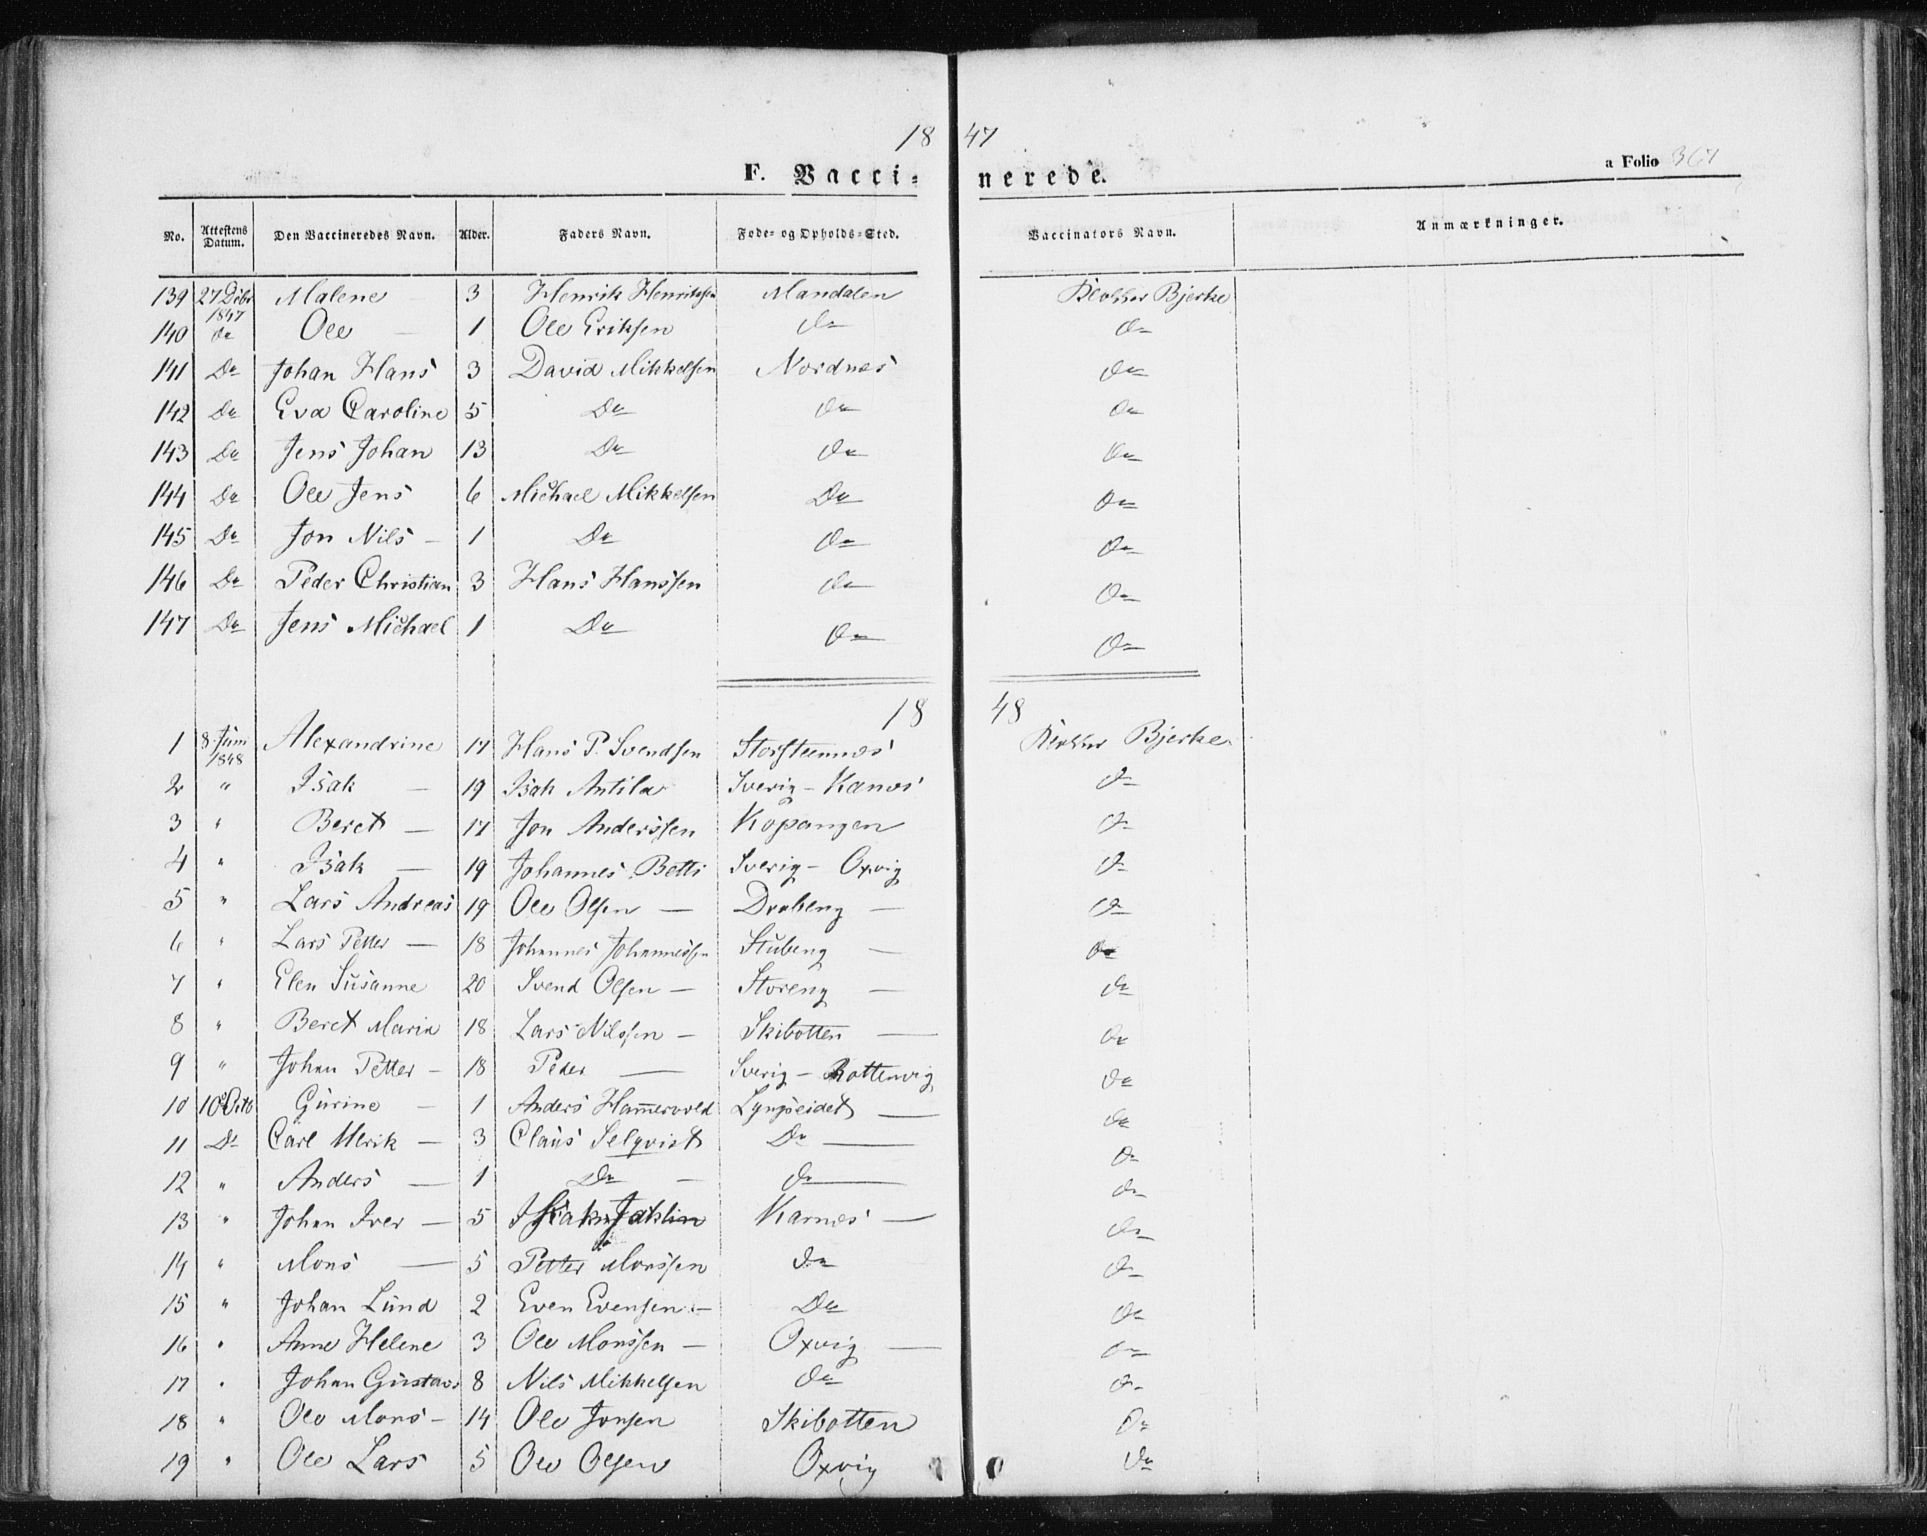 18 47
F. Vacci- nerede. a Folio 367
No. Attestens Datum. Den Vaccineredes Navn. Alder. Faders Navn. Føde- og Opholds-Sted. Vaccinators Navn. Anmærkninger.
139 27 Debr 1847 Malene — 3 Henrik Henriksen Mandalen Klokker Bjerke
140 do Ole — 1 Ole Eriksen do do
141 Do Johan Hans 3 David Mikkelsen Nordnes do
142 Do Eva Caroline 5 Do do do
143 Do Jens Johan 13 Do do do
144 Do Ole Jens 6 Michael Mikkelsen Do do
145 Do Jon Nils — 1 Do do do
146 Do Peder Christian 3 Hans Hanssen do do
147 Do Jens Michael 1 Do do do
18 48
1 8 Juni 1848 Alexandrine 17 Hans P. Svendsen Storsteennes Klokker Bjerke
2 " Isak — 19 Isak Antila Sverig - Karnes do
3 " Beret — 17 Jon Anderssen Kopangen do
4 " Isak — 19 Johannes Betti Sverig - Oxvig do
5 " Lars Andreas 19 Ole Olsen — Drabeng — do
6 " Lars Petter — 18 Johannes Johannessen Stubeng — do
7 " Elen Susanne 20 Svend Olsen — Storeng — do
8 " Beret Maria 18 Lars Nilssen — Skibotten — do
9 " Johan Petter — 18 Peder — Sverig - Rottenvig do
10 10 Octb Gurine — 1 Anders Hamervold Lyngseidet — do
11 Do Carl Ulrik — 3 Claus Selqvist Do — do
12 " Anders — 1 Do — do — do
13 " Johan Iver — 5 Isak Jaklin Karnes — do
14 " Mons — 5 Petter Monssen do do
15 " Johan Lund 2 Even Evensen — Do do
16 " Anne Helene 3 Ole Monssen — Oxvig — do
17 " Johan Gustav 8 Nils Mikkelsen do do
18 " Ole Mons — 14 Ole Jonsen Skibotten do
19 " Ole Lars 5 Ole Olsen Oxvig do